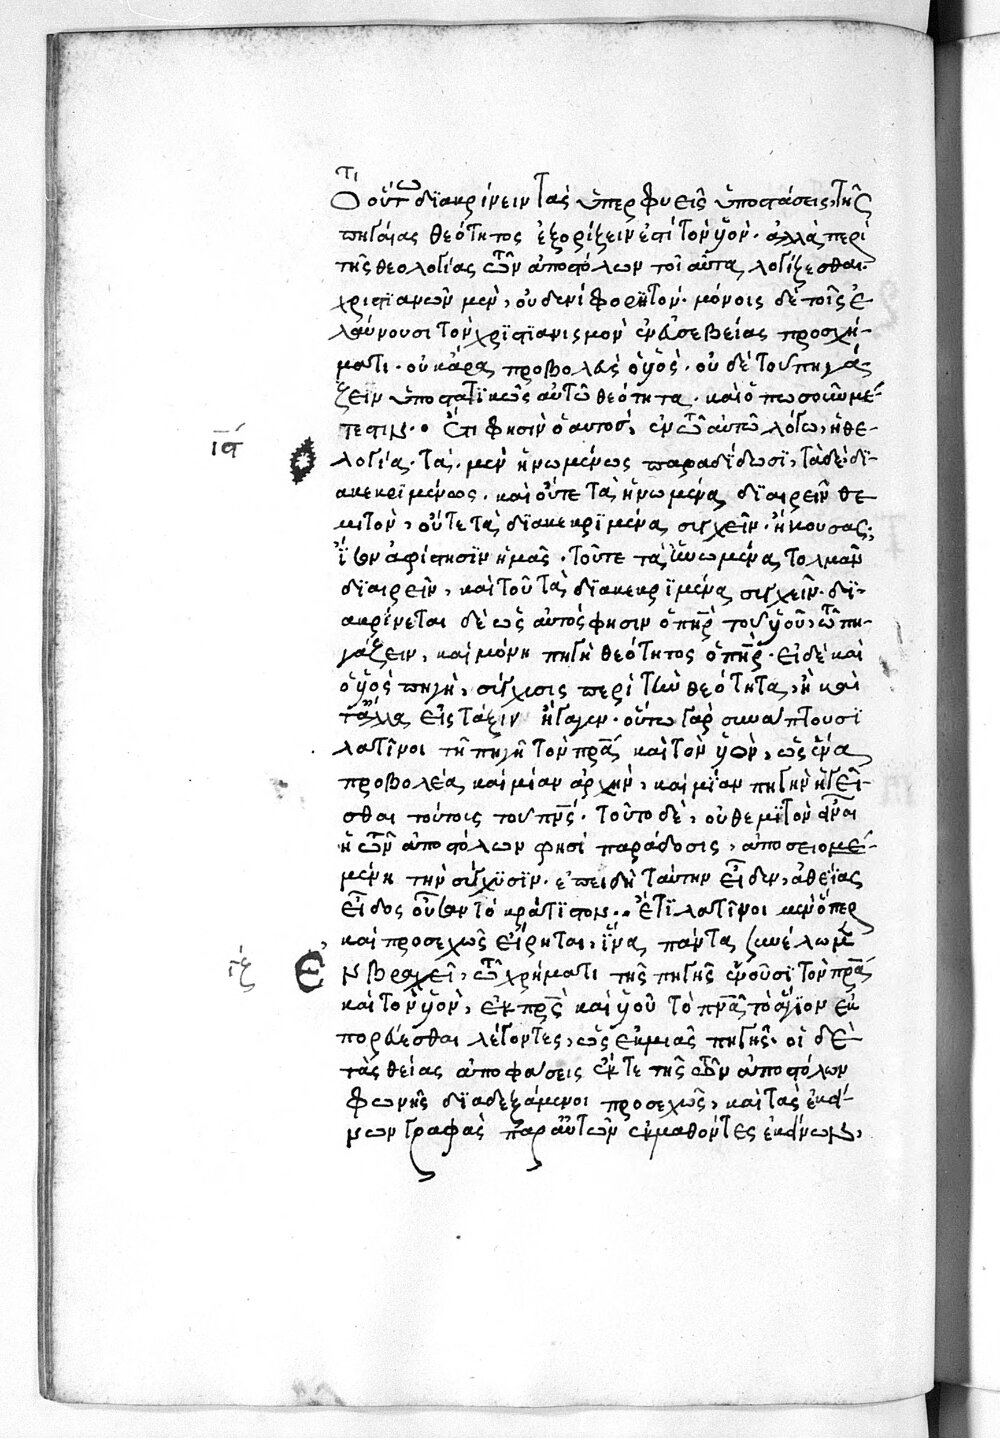 Τὸ οὕτω διακρίνειν τὰς ὑπερφυεῖς ὑποστάσεις, τῆς
πηγαίας θεότητος ἐξορίζειν ἐστὶ τὸν υἱόν· ἀλλὰ περὶ
τῆς θεολογίας τῶν ἀποστόλων τοιαῦτα λογίζεσθαι·
χριστιανῶν μὲν, οὐδενὶ φορητόν· μόνοις δὲ τοῖς ἐ-
λαύνουσι τὸν χριστιανισμὸν ἐν εὐσεβείας προσχή-
ματι· οὐκ ἄρα προβολεὺς ὁ υἱός· οὐδὲ τοῦ πηγά-
ζειν ὑποστατικῶς αὐτῷ θεότητα· καὶ ὁπωσοῦν μέ-
τεστιν· Ἔτι φησὶν ὁ αὐτὸς, ἐν τῷ αὐτῷ λόγῳ, ἡ θε-
ιϛ
ολογία· τὰ μὲν ἡνωμένως παραδίδωσι, τὰ δὲ δι-
ακεκριμένως· καὶ οὔτε τὰ ἡνωμένα διαιρεῖν θε-
μιτὸν, οὔτε τὰ διακεκριμένα συγχεῖν· ἤκουσας;
ἀφίστησιν ἡμᾶς· τοῦ τε τὰ ἡνωμένα τολμᾶν
διαιρεῖν, καὶ τοῦ τὰ διακεκριμένα συγχεῖν· δι-
ακρίνεται δὲ ὡς αὐτός φησιν ὁ πηρ τοῦ υἱοῦ, τῷ πη-
γάζειν, καὶ μόνη πηγὴ θεότητος ὁ πηρ· εἰ δὲ καὶ
ὁ υἱὸς πηγὴ, σύγχυσις περὶ τὴν θεότητα, ἢ καὶ
τἄλλα εἰς τάξιν ἤγαγεν· οὕτω γὰρ συνάπτουσι
λατῖνοι τῇ πηγῇ τὸν πρα καὶ τὸν υἱὸν, ὡς ἕνα
προβολέα, καὶ μίαν ἀρχὴν, καὶ μίαν πηγὴν ἡγεῖ-
σθαι τούτοις τοῦ πνς· τοῦτο δὲ, οὐ θεμιτὸν εἶναι
ἡ τῶν ἀποστόλων φησὶ παράδοσις, ἀποσειομέ-
μένη τὴν σύγχυσιν· ἐπειδὴ ταύτην εἶδεν, ἀθεΐας
εἶδος οὖσαν τὸ κράτιστον· Ἔτι λατῖνοι μὲν ὅπερ
καὶ προσεχῶς εἴρηται, ἵνα πάντα συνέλωμεν
ιζ
ἐν βραχεῖ, τῷ χρήματι τῆς πηγῆς ἑνοῦσι τὸν πρα
καὶ τὸν υἱὸν, ἐκ πρς καὶ υἱοῦ τὸ πνα τὸ ἅγιον ἐκ
πορεύεσθαι λέγοντες, ὡς ἐκ μιᾶς πηγῆς· οἱ δὲ
τὰς θείας ἀποφάσεις ἔκ τε τῆς τῶν ἀποστόλων
φωνῆς διαδεξάμενοι προσεχῶς, καὶ τὰς ἐκεί-
νων γραφὰς παρ' αὐτῶν ἐκμαθόντες ἐκείνων,